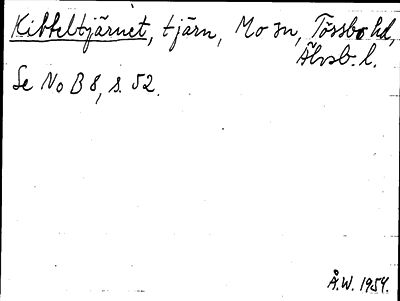 Kibbeltjärnet, tjärn, Mo sn, Tössbo hd,
Älvsb. l.
Se No B 8, s. 52.
Å.W. 1954.